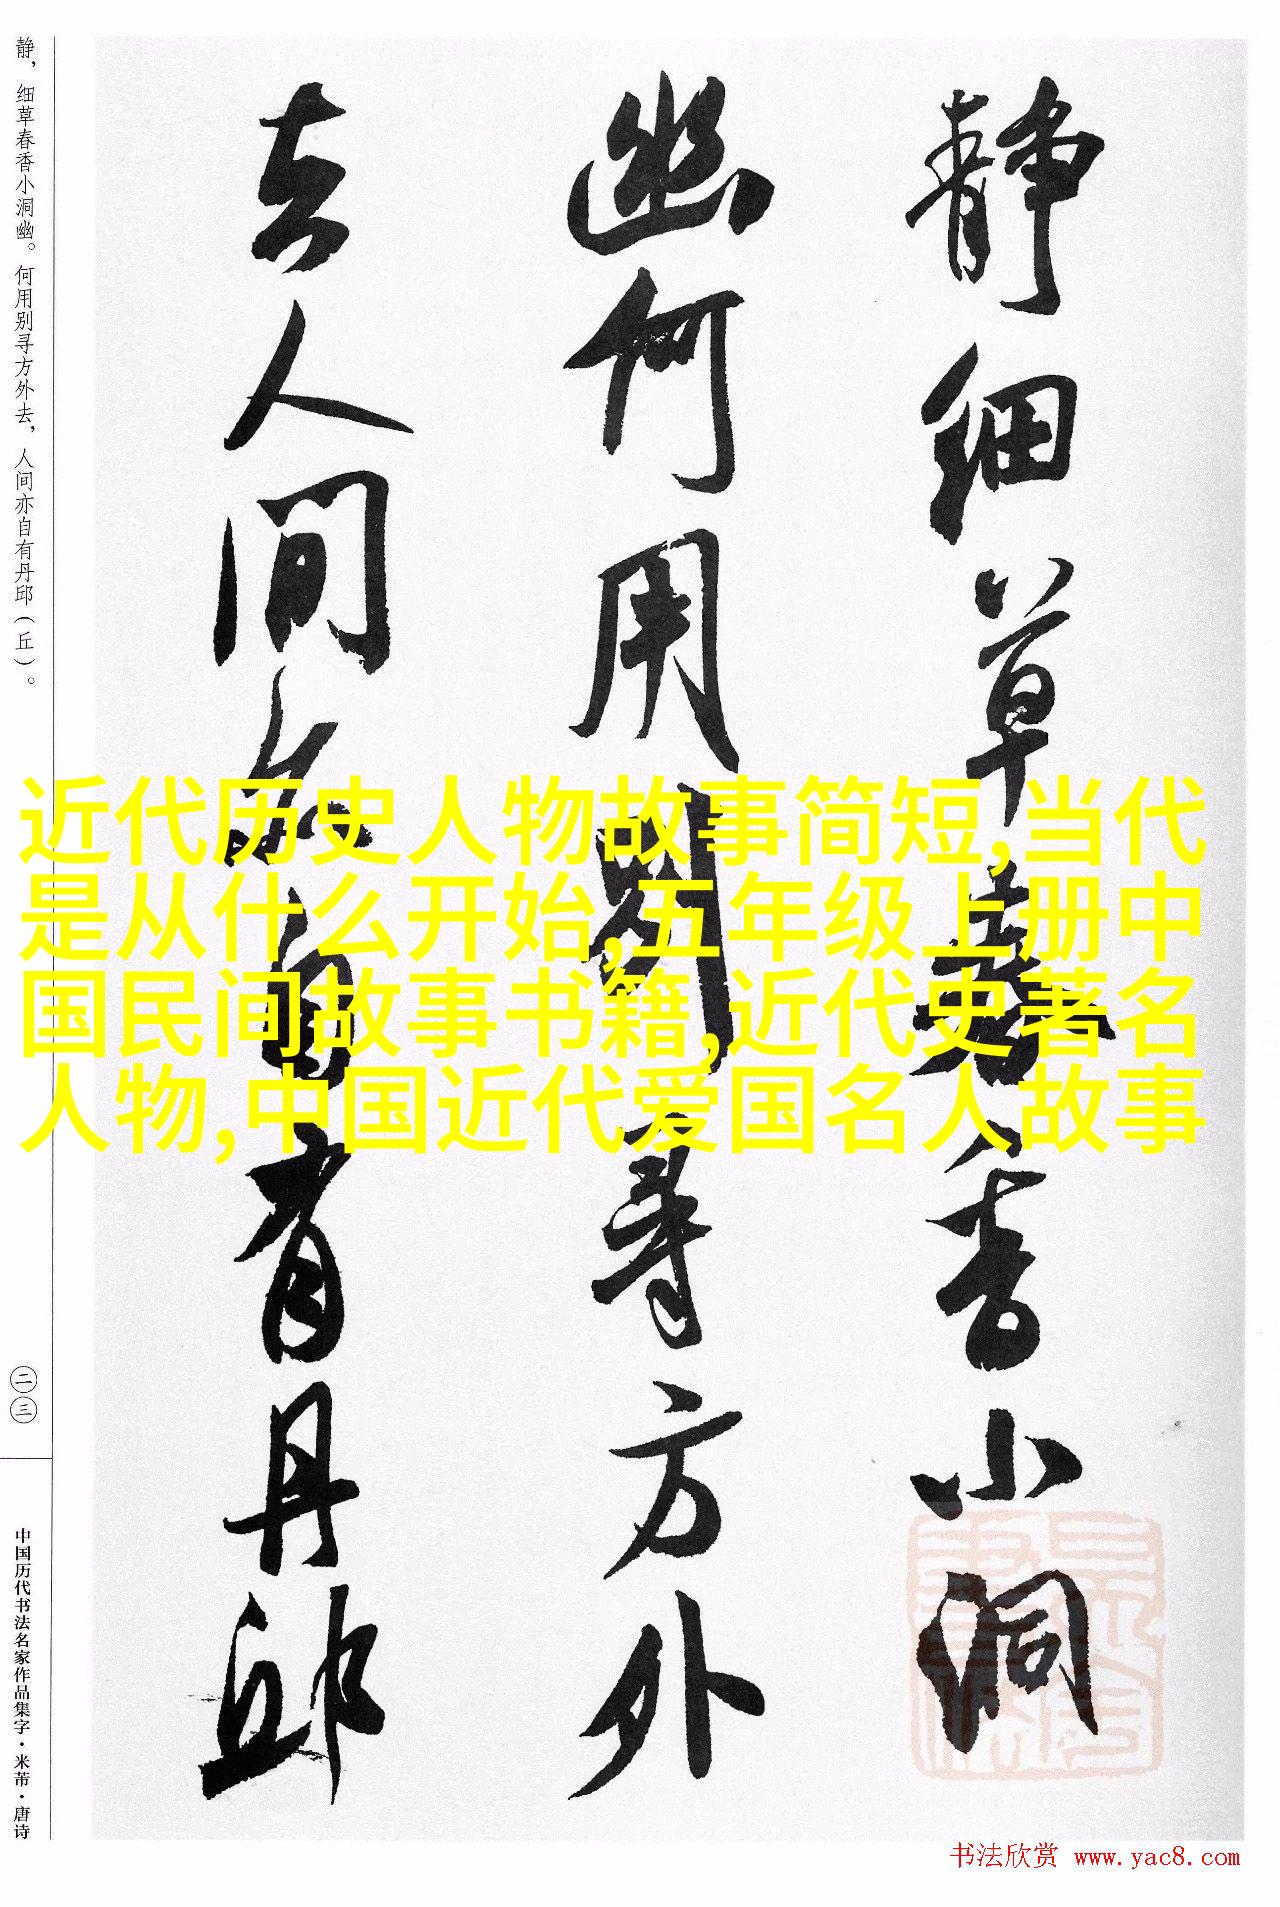 静，细草春香小洞幽。何用别寻方外去，人间亦自有丹邱（丘）。
二三
中国历代书法名家作品集字·米芾·唐诗
静细草春香小洞
幽何用别寻方外
去人间亦自有丹邱
近代历史人物故事简短,当代
是从什么开始,五年级上册中
国民间故事书籍,近代史著名
人物,中国近代爱国名人故事
书法欣赏 www.yac8.com